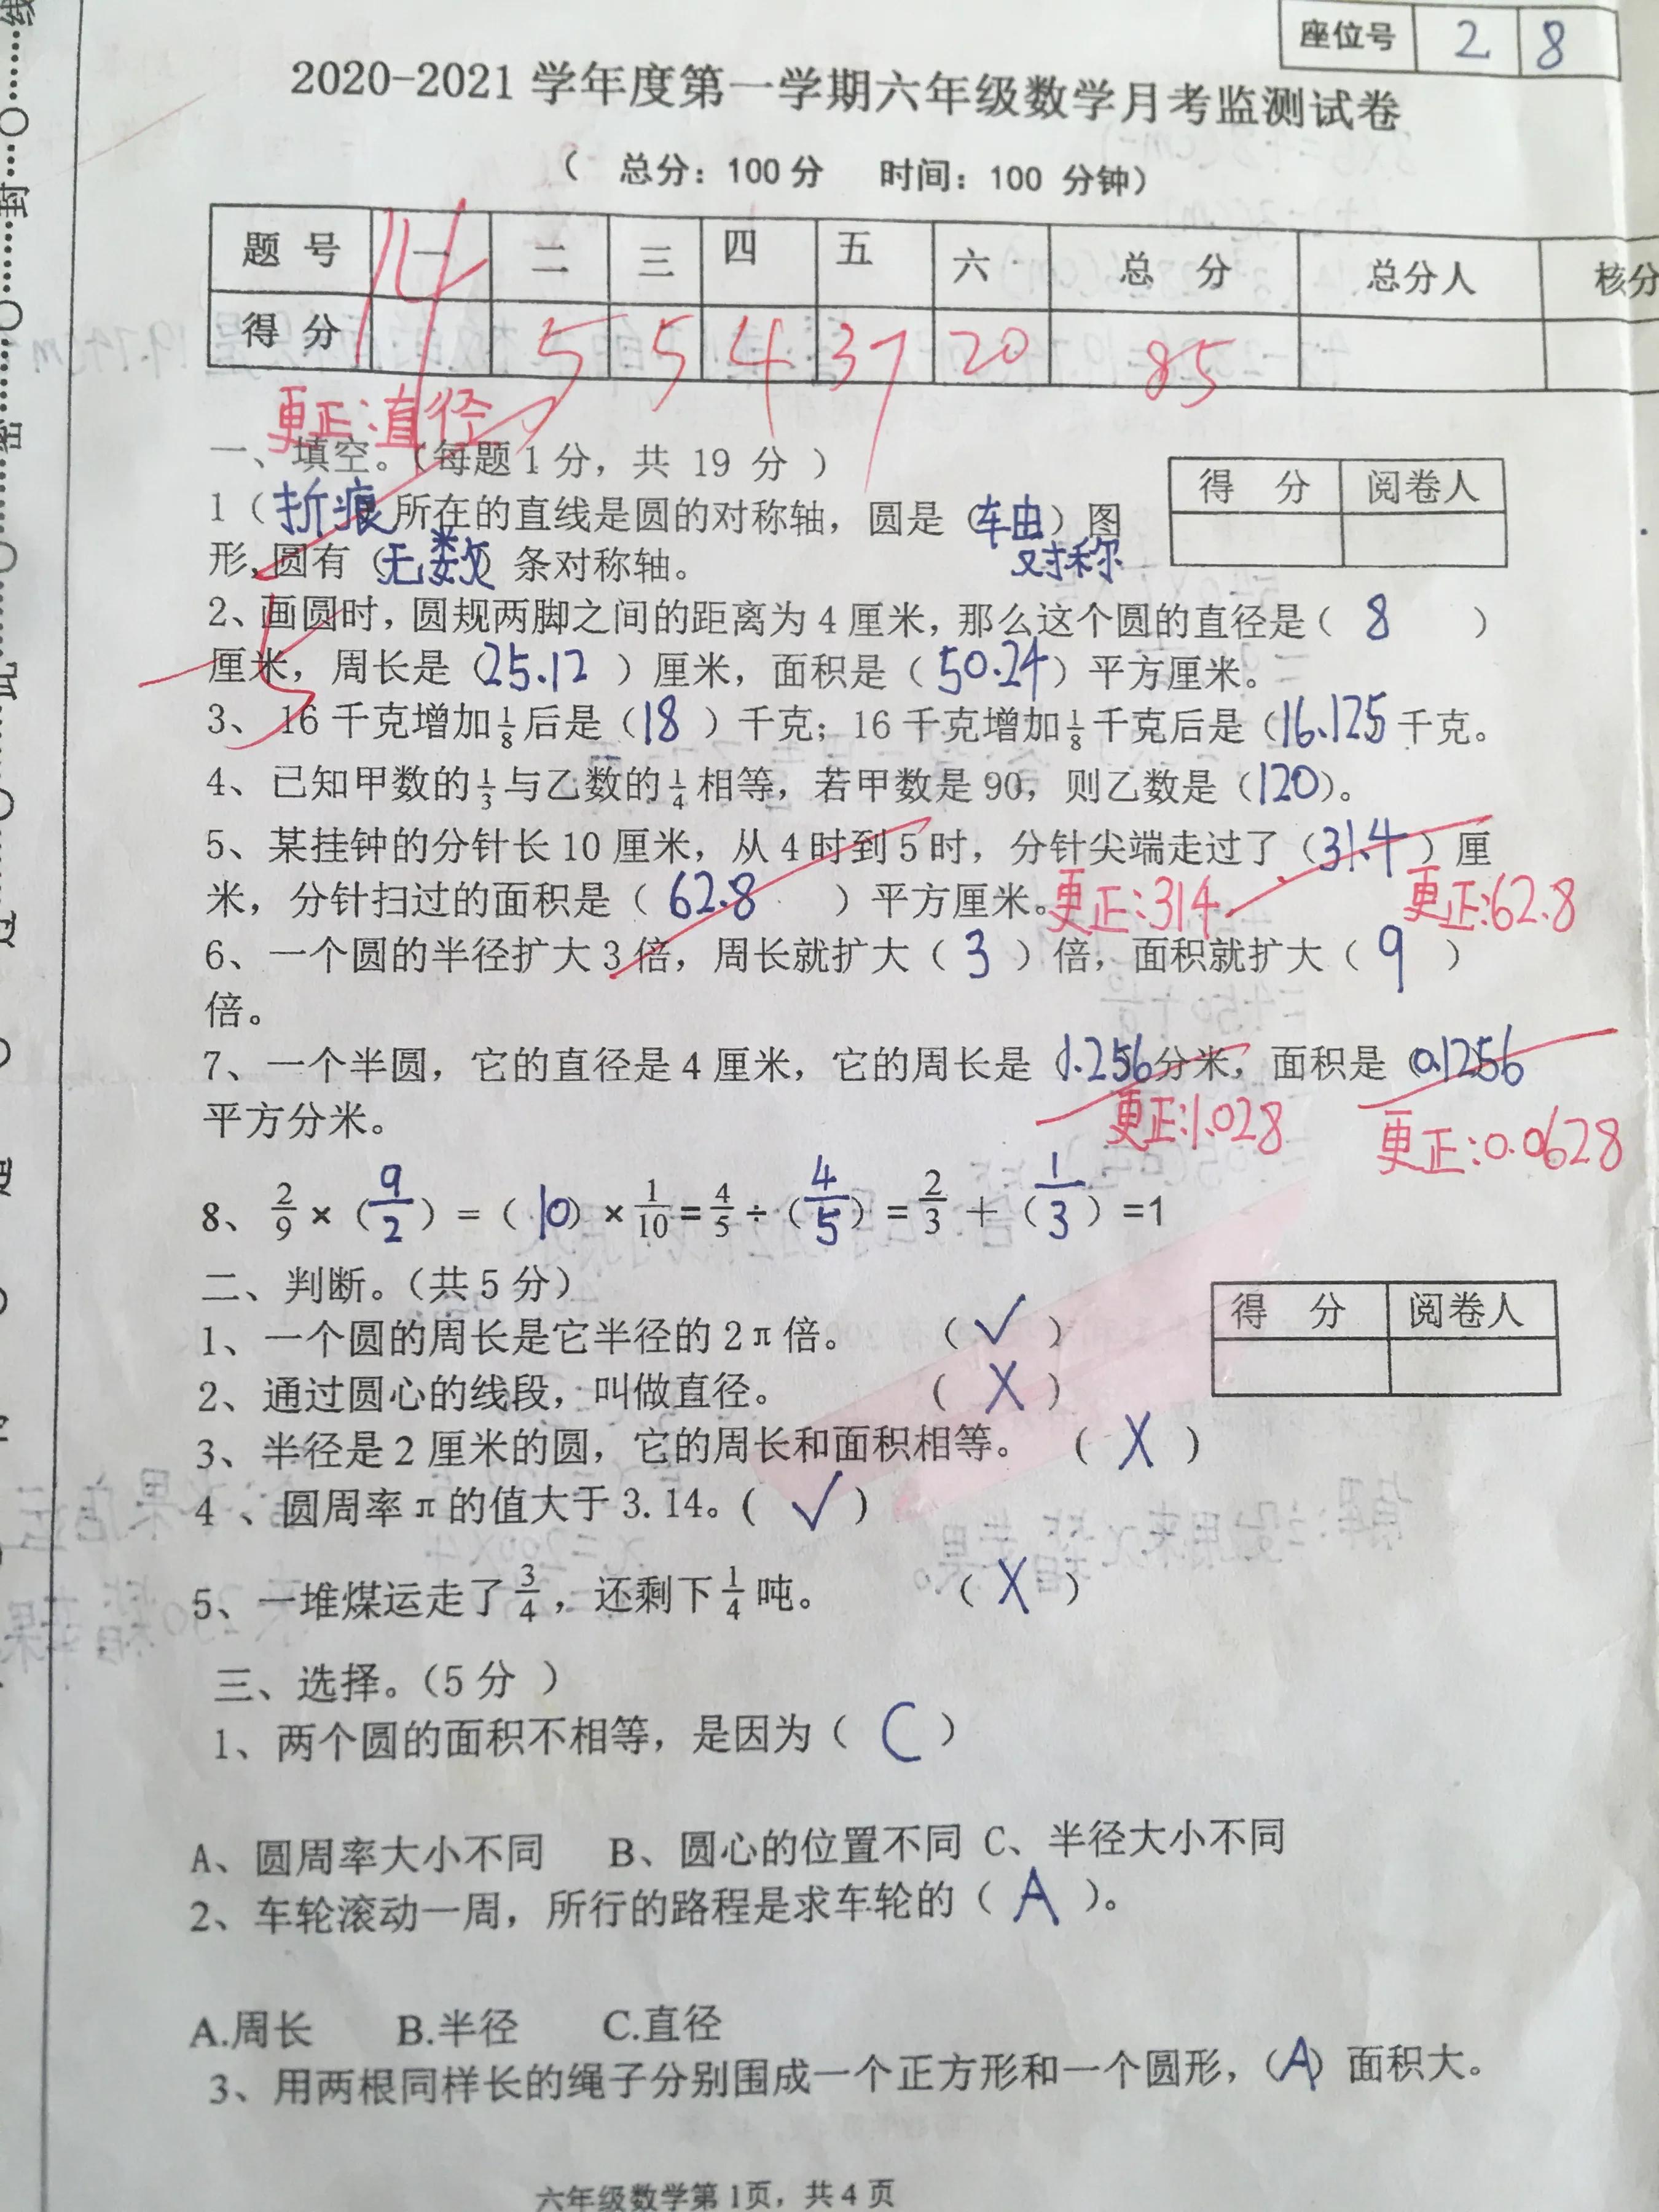 座位号 2 8
2020-2021 学年度第一学期六年级数学月考监测试卷
( 总分：100 分 时间：100 分钟)
题 号 一 二 三 四 五 六 总 分 总分人 核分
得 分 14 5 5 4 37 20 85
更正:直径
一、填空。(每题 1 分，共 19 分 )
得 分 阅卷人
1 (折痕)所在的直线是圆的对称轴，圆是 (车由对称) 图
形,圆有 (无数) 条对称轴。
2、画圆时，圆规两脚之间的距离为 4 厘米，那么这个圆的直径是( 8 )
厘米，周长是 (25.12 ) 厘米，面积是 ( 50.24) 平方厘米。
3、16 千克增加 1/8 后是 (18 ) 千克；16 千克增加 1/8 千克后是 (16.125 千克。
4、已知甲数的 1/3 与乙数的 1/4 相等，若甲数是 90，则乙数是 (120)。
5、某挂钟的分针长 10 厘米，从 4 时到 5 时，分针尖端走过了 (31.4 ) 厘
米，分针扫过的面积是 ( 62.8 ) 平方厘米。更正:314 更正:62.8
6、一个圆的半径扩大 3 倍，周长就扩大 ( 3 ) 倍，面积就扩大 ( 9 )
倍。
7、一个半圆，它的直径是 4 厘米，它的周长是 (1.256 分米，面积是 0.1256
平方分米。 更正:1.028 更正:0.0628
8、 2/9 × ( 9/2 ) = ( 10) × 1/10 = 4/5 ÷ ( 4/5 ) = 2/3 + ( 1/3 ) =1
二、判断。(共 5 分)
得 分 阅卷人
1、一个圆的周长是它半径的 2π倍。 ( √ )
2、通过圆心的线段，叫做直径。 ( X )
3、半径是 2 厘米的圆，它的周长和面积相等。 ( X )
4 、圆周率π的值大于 3.14。( √ )
5、一堆煤运走了 3/4 ，还剩下 1/4 吨。 ( X )
三、选择。(5 分 )
1、两个圆的面积不相等，是因为 ( C )
A、圆周率大小不同 B、圆心的位置不同 C、半径大小不同
2、车轮滚动一周，所行的路程是求车轮的 ( A )。
A.周长 B.半径 C.直径
3、用两根同样长的绳子分别围成一个正方形和一个圆形，(A) 面积大。
六年级数学第 1页，共 4 页